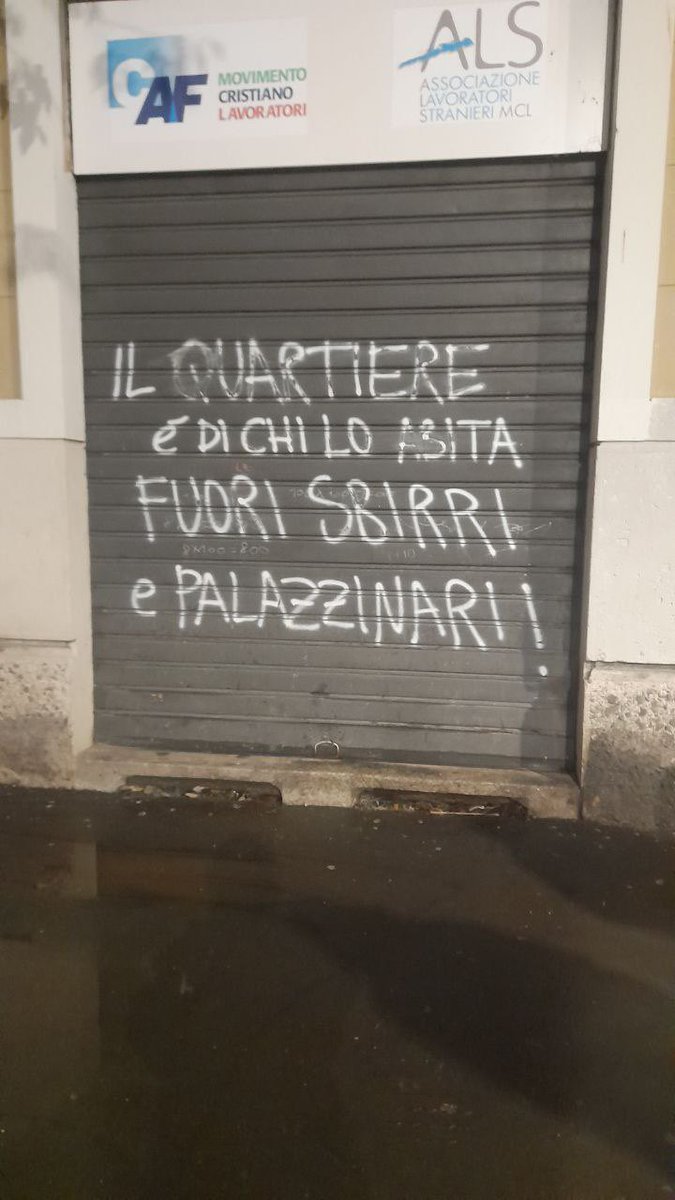 CAF
MOVIMENTO
CRISTIANO
LAVORATORI
ALS
ASSOCIAZIONE
LAVORATORI
STRANIERI MCL
IL QUARTIERE
é DI CHI LO ABITA
FUORI SBIRRI
e PALAZZINARI!